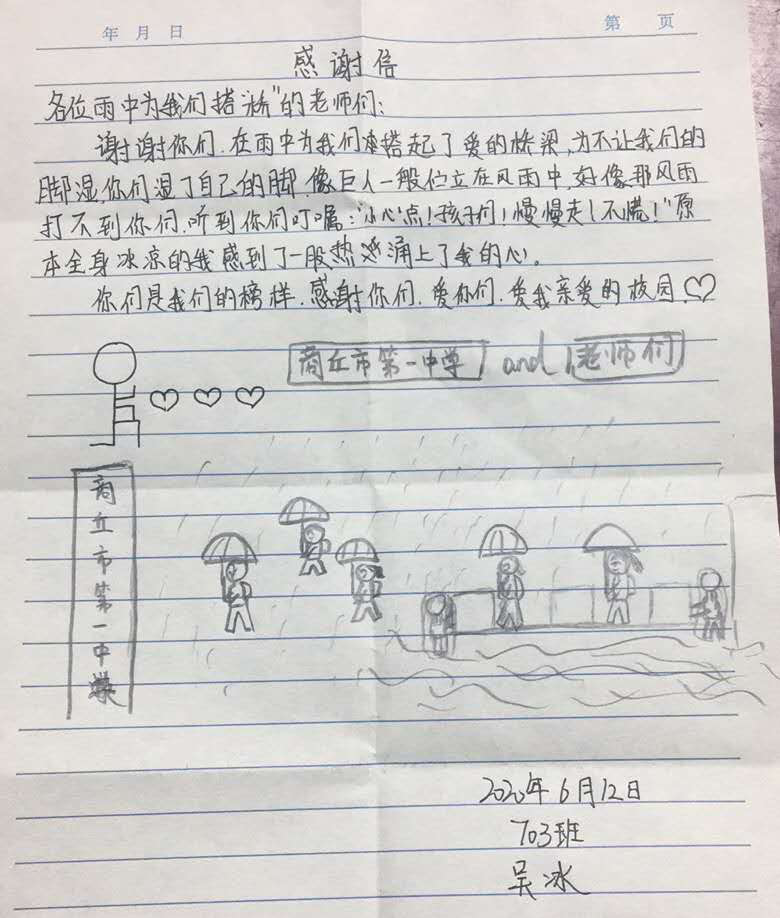 年 月 日
第 页
感谢信
各位雨中为我们搭“桥”的老师们:
谢谢你们.在雨中为我们搭起了爱的桥梁,为不让我们的
脚湿,你们湿了自己的脚.像巨人一般伫立在风雨中,好像那风雨
打不到你们,听到你们叮嘱:“小心点!孩子们!慢慢走!不慌!”原
本全身冰凉的我感到了一股热涌上了我的心。
你们是我们的榜样.感谢你们.爱你们.爱我亲爱的校园.
商丘市第一中学 and 老师们
商丘市第一中学
2020年6月12日
703班
吴冰